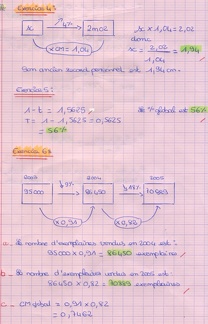 Exercice 4:
x
↗ 4%
2m02
x × 1,04 = 2,02
x CM = 1,04
donc
x = 2,02 / 1,04 = 1,94
Son ancien record personnel est 1,94 cm.
Exercice 5:
1 - t = 1,5625
T = 1 - 1,5625 = 0,5625
= 56%
global est 56%
Exercice 6:
2003 2004 2005
95000 86450 70889
x 0,91 x 0,82
a - Le nombre d'exemplaires vendus en 2004 est:
95000 x 0,91 = 86450 exemplaires
b - Le nombre d'exemplaires vendus en 2005 est:
86450 x 0,82 = 70889 exemplaires
c - CM global = 0,91 x 0,82
= 0,7462